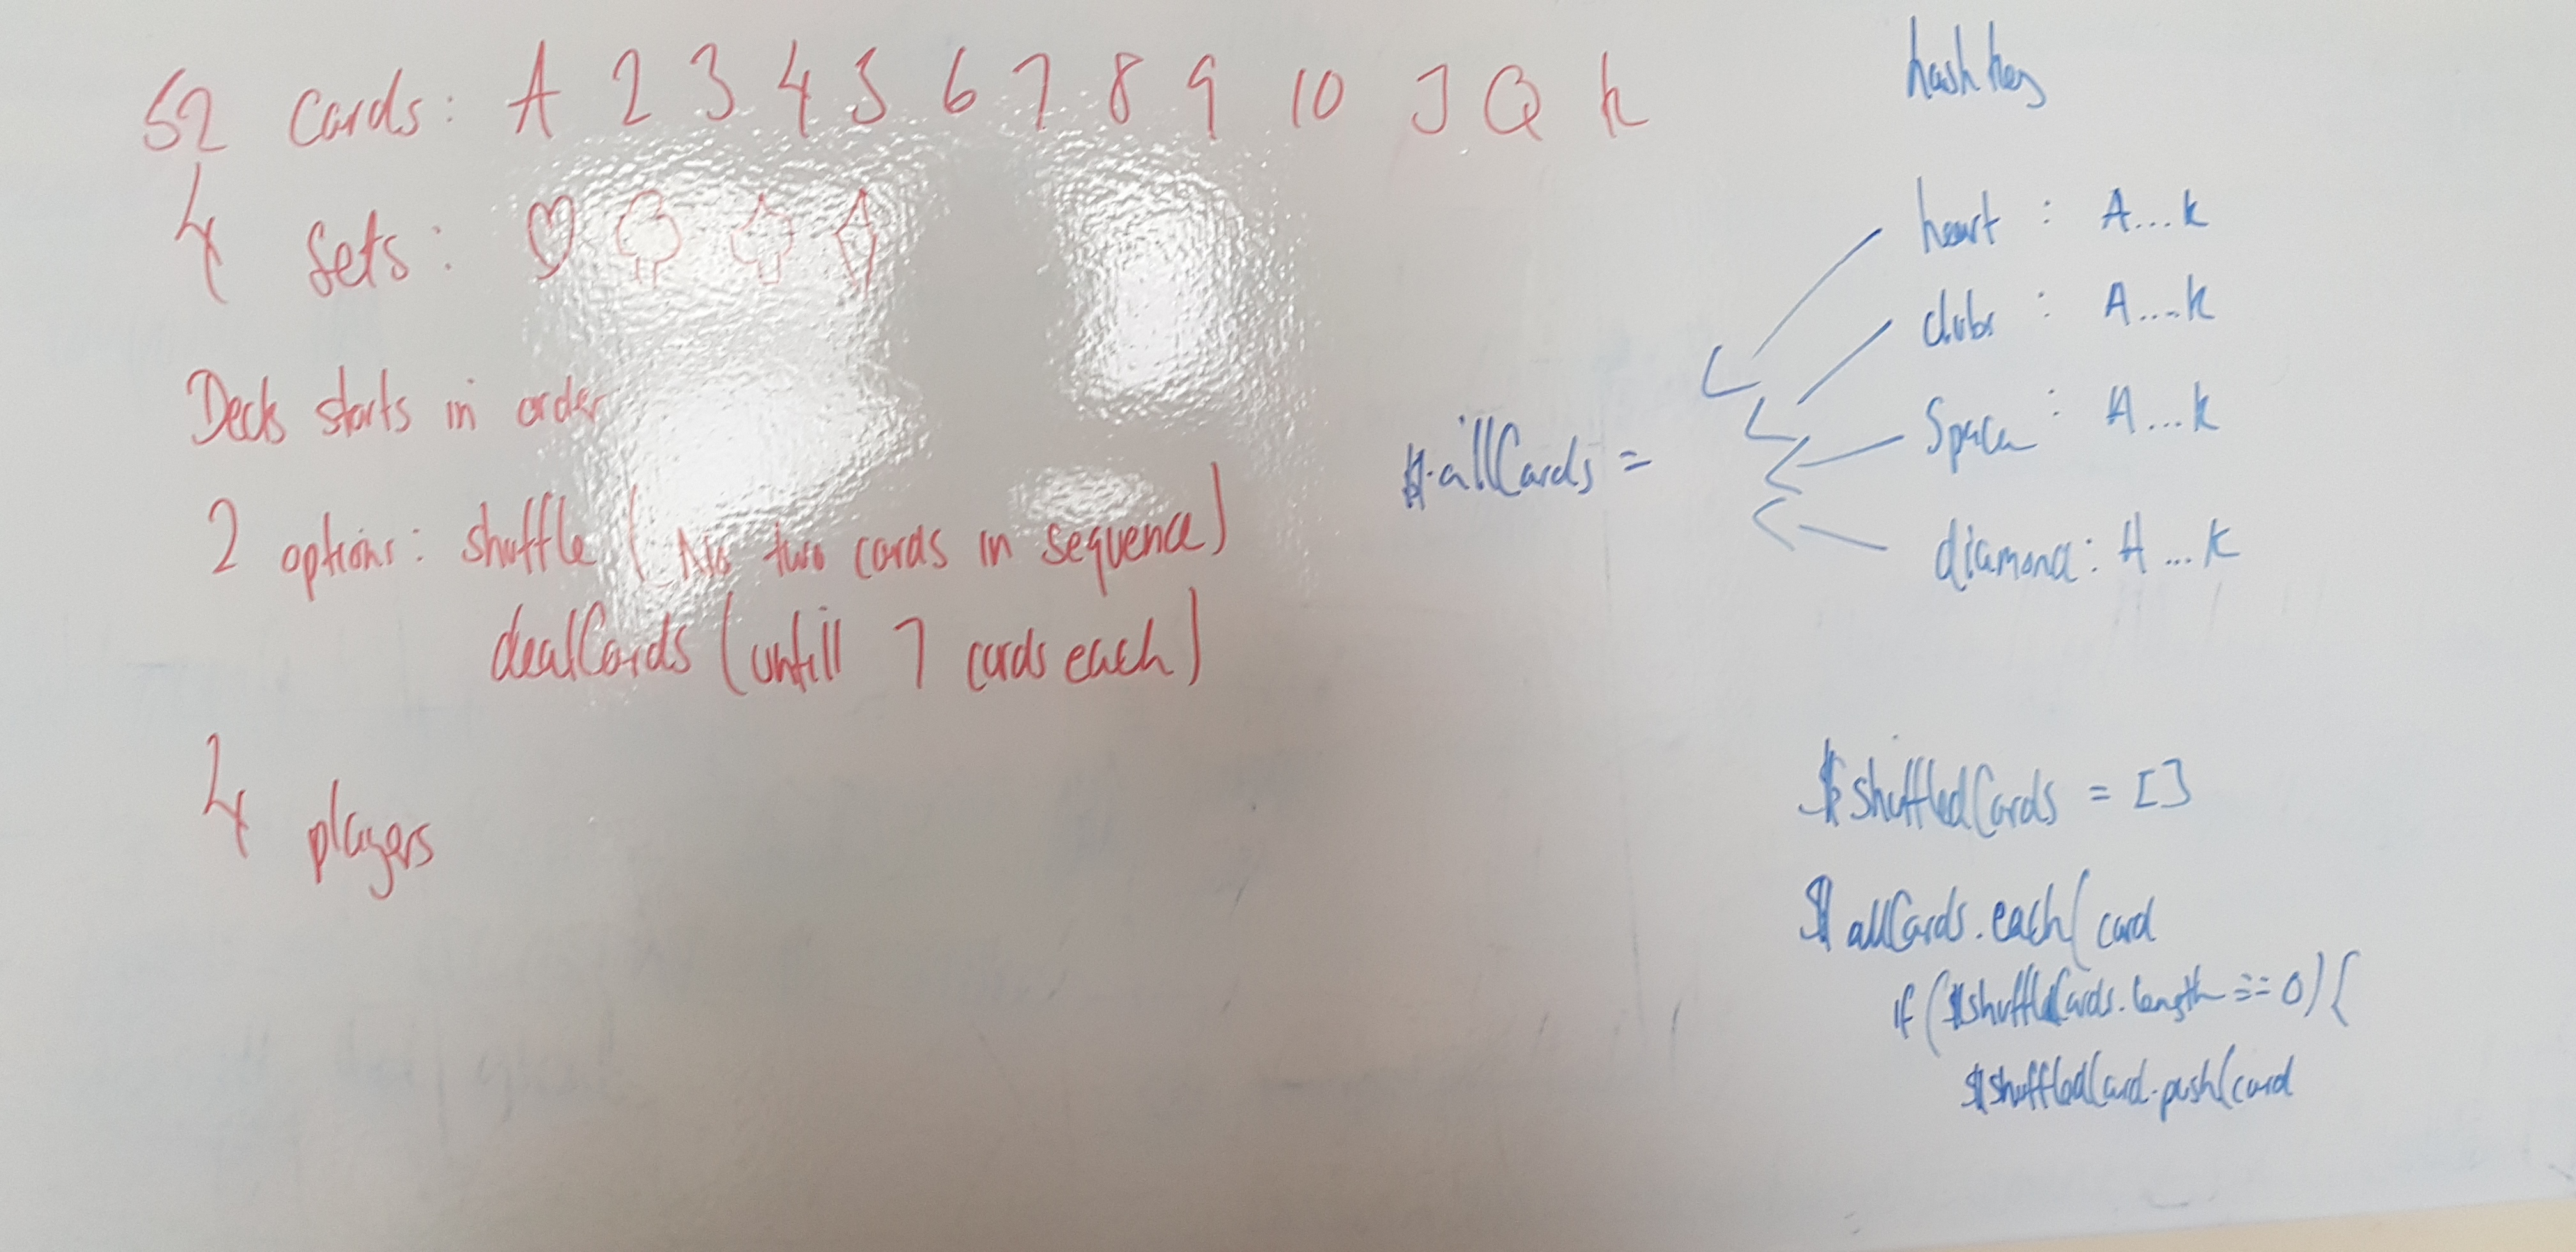 52 cards: A 2 3 4 5 6 7 8 9 10 J Q K
4 Sets:
Deck starts in order
2 options: shuffle (No two cards in sequence)
dealCards (untill 7 cards each)
4 players
hash key
heart : A...K
clubs : A....K
: A...K
diamond: A...K
$allCards =
$shuffledCards = []
$allCards.each(card
if ($shuffledCards.length === 0) {
$shuffledCard.push(card